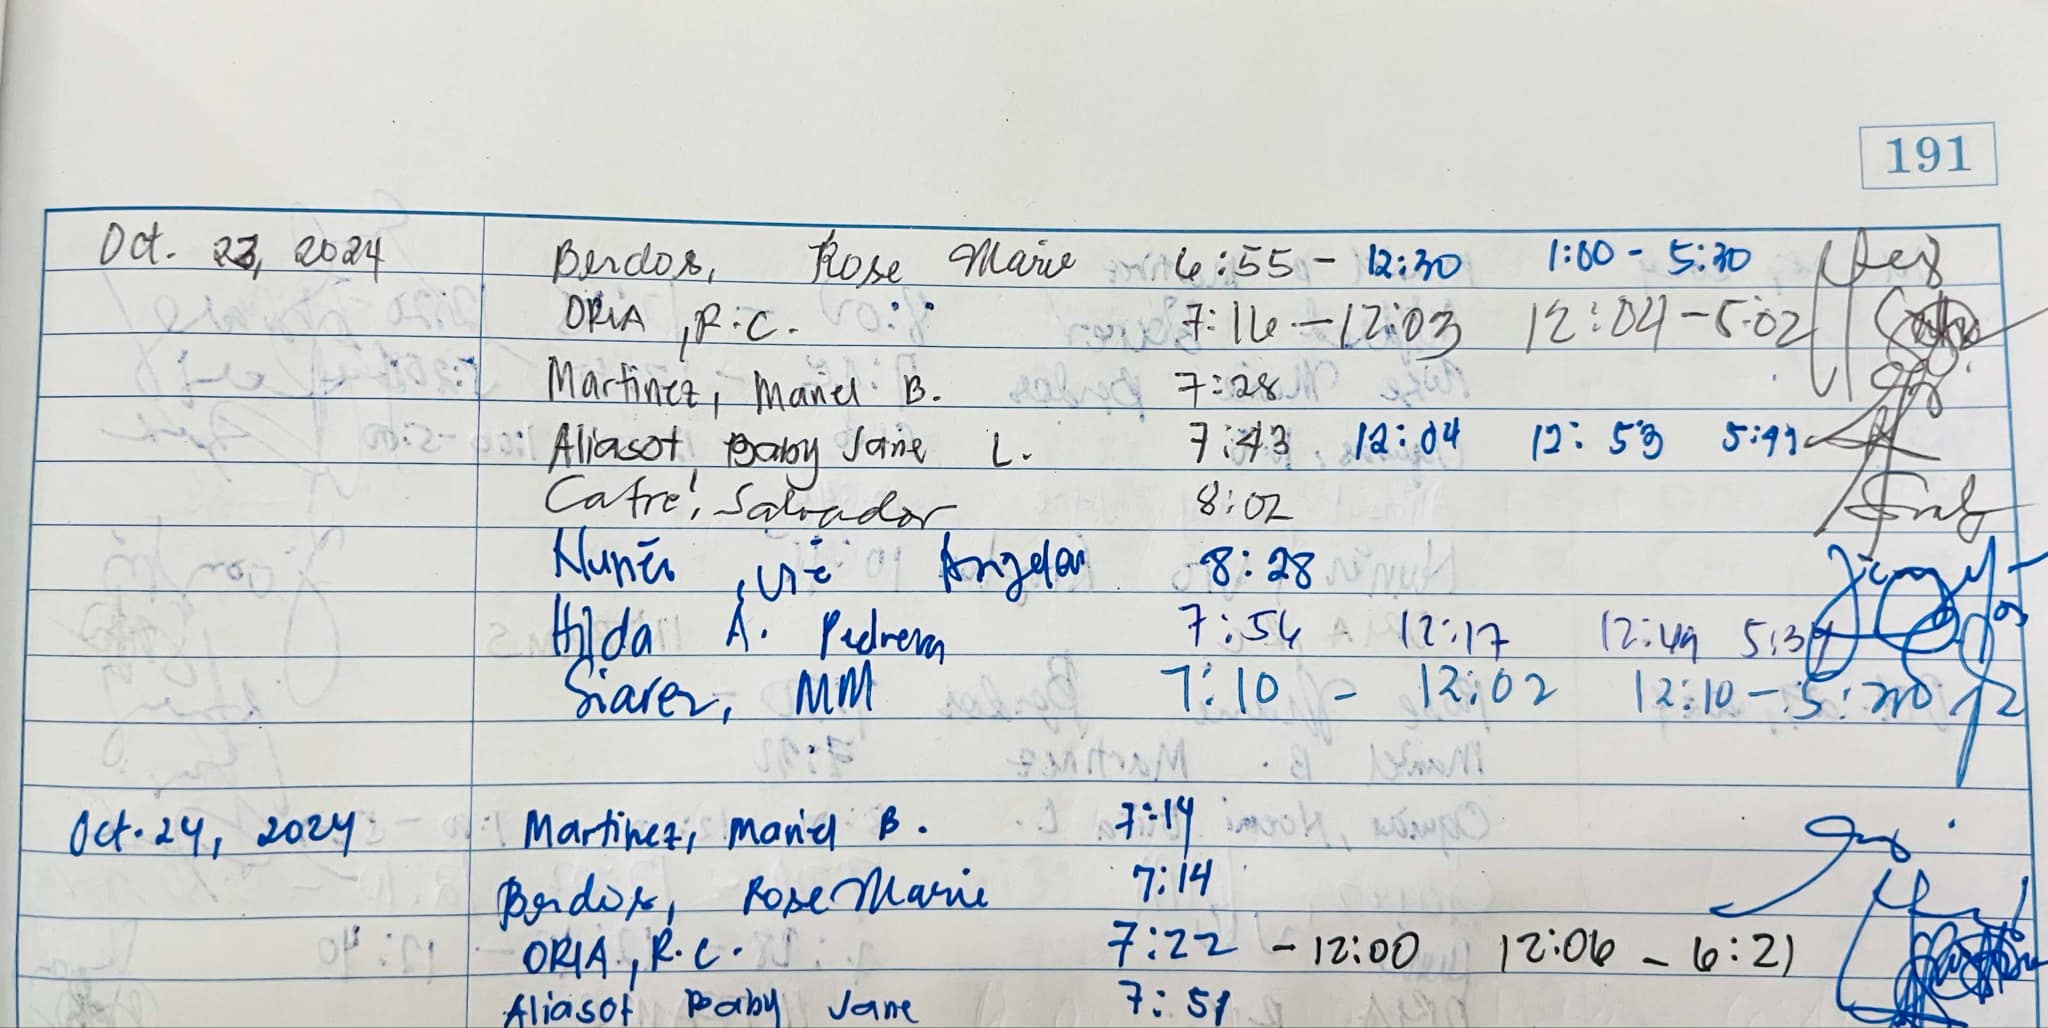 191
Oct. 23, 2024 Berdos, Rose Marie 6:55 - 12:30 1:00 - 5:30
ORIA, R.C. 7:16 - 12:03 12:04 - 5:02
Martinez, Mariel B. 7:28
Aliasot, Baby Jane L. 7:43 12:04 12:53
Catre, Salvador 8:02
8:28
Hilda A. Pedrera 7:54 12:17 12:49
Siarez, MM 7:10 - 12:02 12:10 -
Oct. 24, 2024 Martinez, Mariel B. 7:14
Berdos, Rose Marie 7:14
ORIA, R.C. 7:22 - 12:00 12:06 - 6:21
Aliasot Baby Jane 7:51